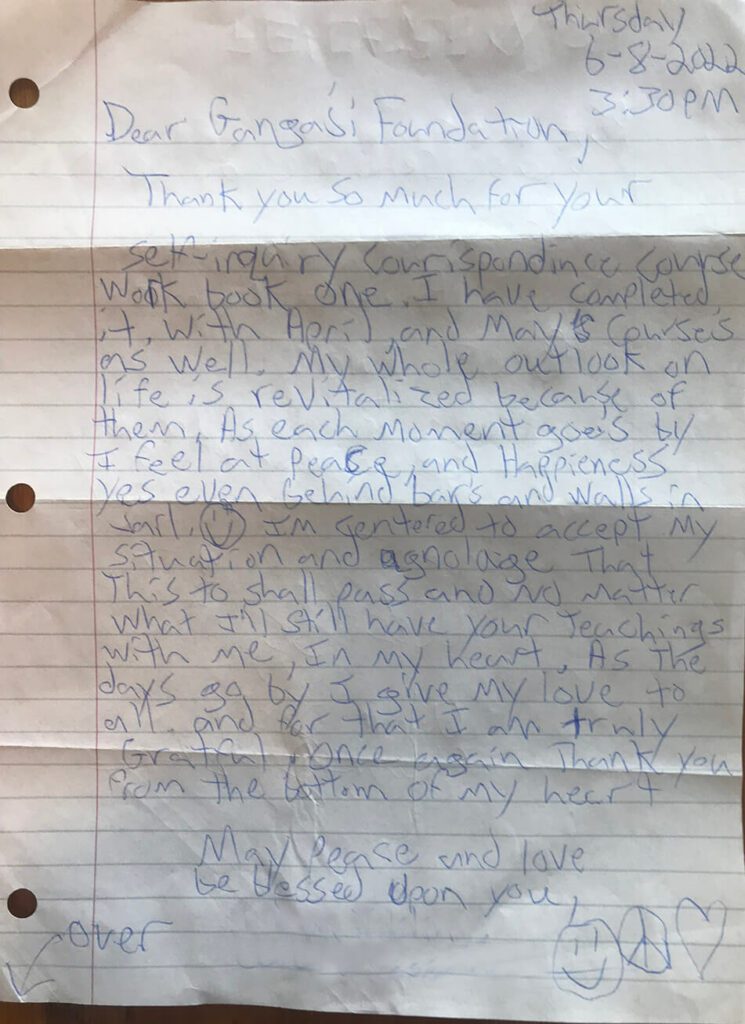 Thursday
6-8-2022
3:30PM
Dear Gangaji Foundation,
Thank you so much for your
self-inquiry Courispondince Course
work book one. I have completed
it, with April, and May's Course's
as well. My whole outlook on
life is revitalized because of
them. As each moment goes by
I feel at peace, and Happieness
yes even behind bars and walls in
Jail. I'm sentered to accept my
situation and agnolage That
This to shall pass and no matter
what I'll still have your teachings
with me, In my heart. As the
days go by I give my love to
all. and for that I am truly
Gratful. Once again Thank you
from the bottom of my heart
May Pease and love
be blessed upon you,
over